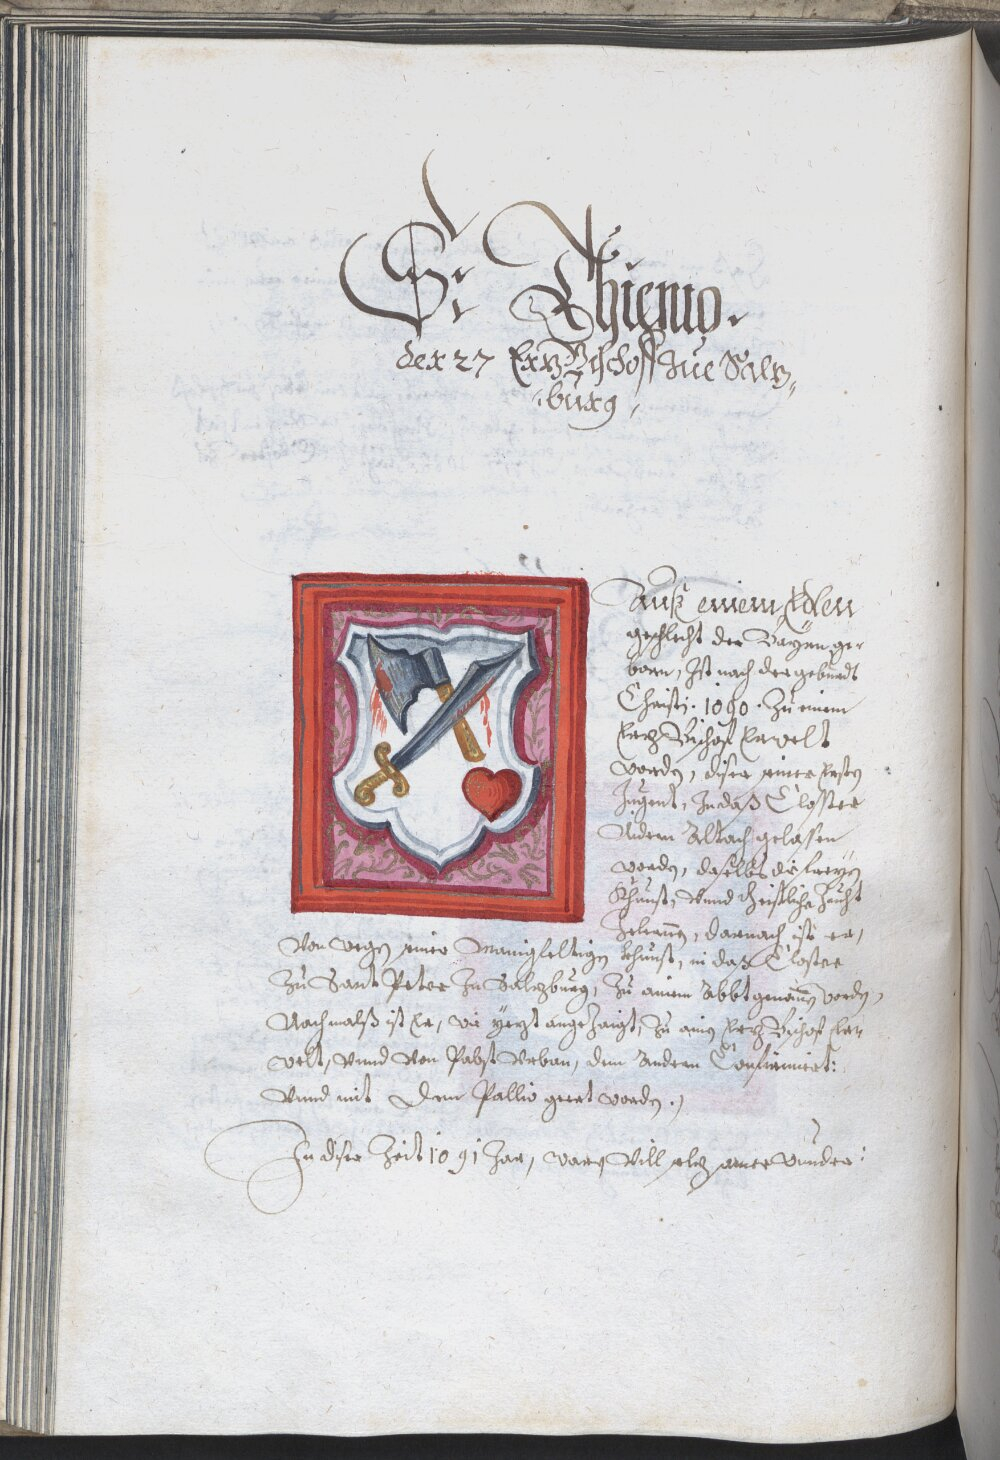 S: Thiemo.
der 27 Ertz Bischoff zue Saltz„
burg,
Auß einem Edlen
geschlecht der Bayrn ge„
born, Ist nach der geburdt
Christi. 1090. Zu einem
Ertz Bischof Erwelt
worden, diser seiner Ersten
Jugent, In daß Closter
Nidern Altach gelassen
worden, daselbs die freyen
Khunst, unnd Geistliche Zucht
Gelernet, darnach ist er,
Von wegen seiner Manigfeltigen Khunst, in daß Closter
Zu Sant Peter In Saltzburg, Zu ainem Abbt genomen worden,
Nachmalß ist Er, wie yetzt angeZaigt, Zu aim Ertz Bischof Er„
welt, unnd von Pabst Urban, dem Andern Confirmiert:
Unnd mit Dem Pallio geert worden.
In diser Zeit 1091 Jar, warn Vill